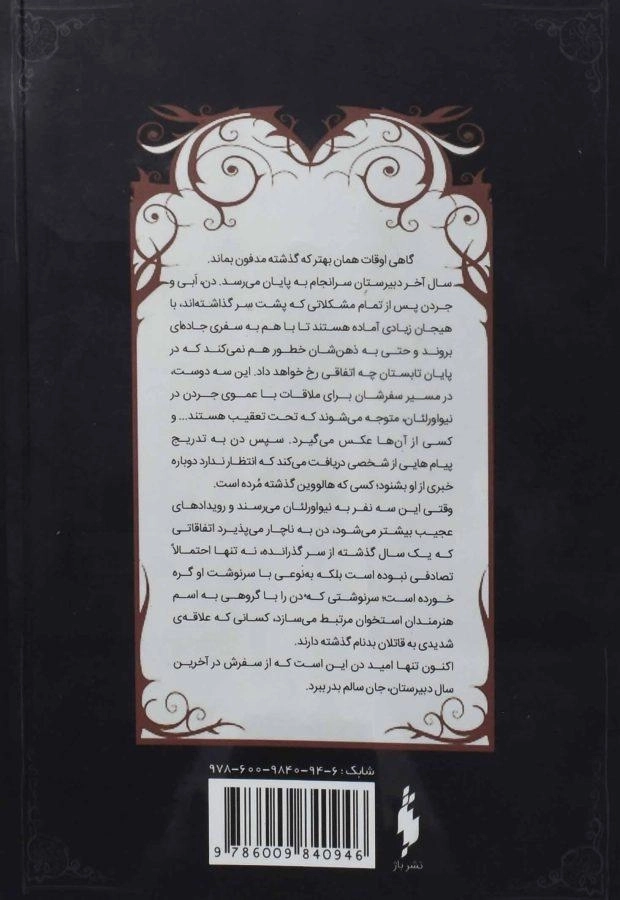 گاهی اوقات همان بهتر که گذشته مدفون بماند.
سال آخر دبیرستان سرانجام به پایان می‌رسد. دن، اَبی و
جردن پس از تمام مشکلاتی که پشت سر گذاشته‌اند، با
هیجان زیادی آماده هستند تا با هم به سفری جاده‌ای
بروند و حتی به ذهن‌شان خطور هم نمی‌کند که در
پایان تابستان چه اتفاقی رخ خواهد داد. این سه دوست،
در مسیر سفرشان برای ملاقات با عموی جردن در
نیواورلئان، متوجه می‌شوند که تحت تعقیب هستند... و
کسی از آن‌ها عکس می‌گیرد. سپس دن به تدریج
پیام هایی از شخصی دریافت می‌کند که انتظار ندارد دوباره
خبری از او بشنود؛ کسی که هالووین گذشته مُرده است.
وقتی این سه نفر به نیواورلئان می‌رسند و رویدادهای
عجیب بیشتر می‌شود، دن به ناچار می‌پذیرد اتفاقاتی
که یک سال گذشته از سر گذرانده، نه تنها احتمالاً
تصادفی نبوده است بلکه به‌نوعی با سرنوشت او گره
خورده است؛ سرنوشتی که دن را با گروهی به اسم
هنرمندان استخوان مرتبط می‌سازد، کسانی که علاقه‌ی
شدیدی به قاتلان بدنام گذشته دارند.
اکنون تنها امید دن این است که از سفرش در آخرین
سال دبیرستان، جان سالم بدر ببرد.
شابک: ۶-۹۴-۹۸۴۰-۶۰۰-۹۷۸
9 786009 840946
نشر باژ